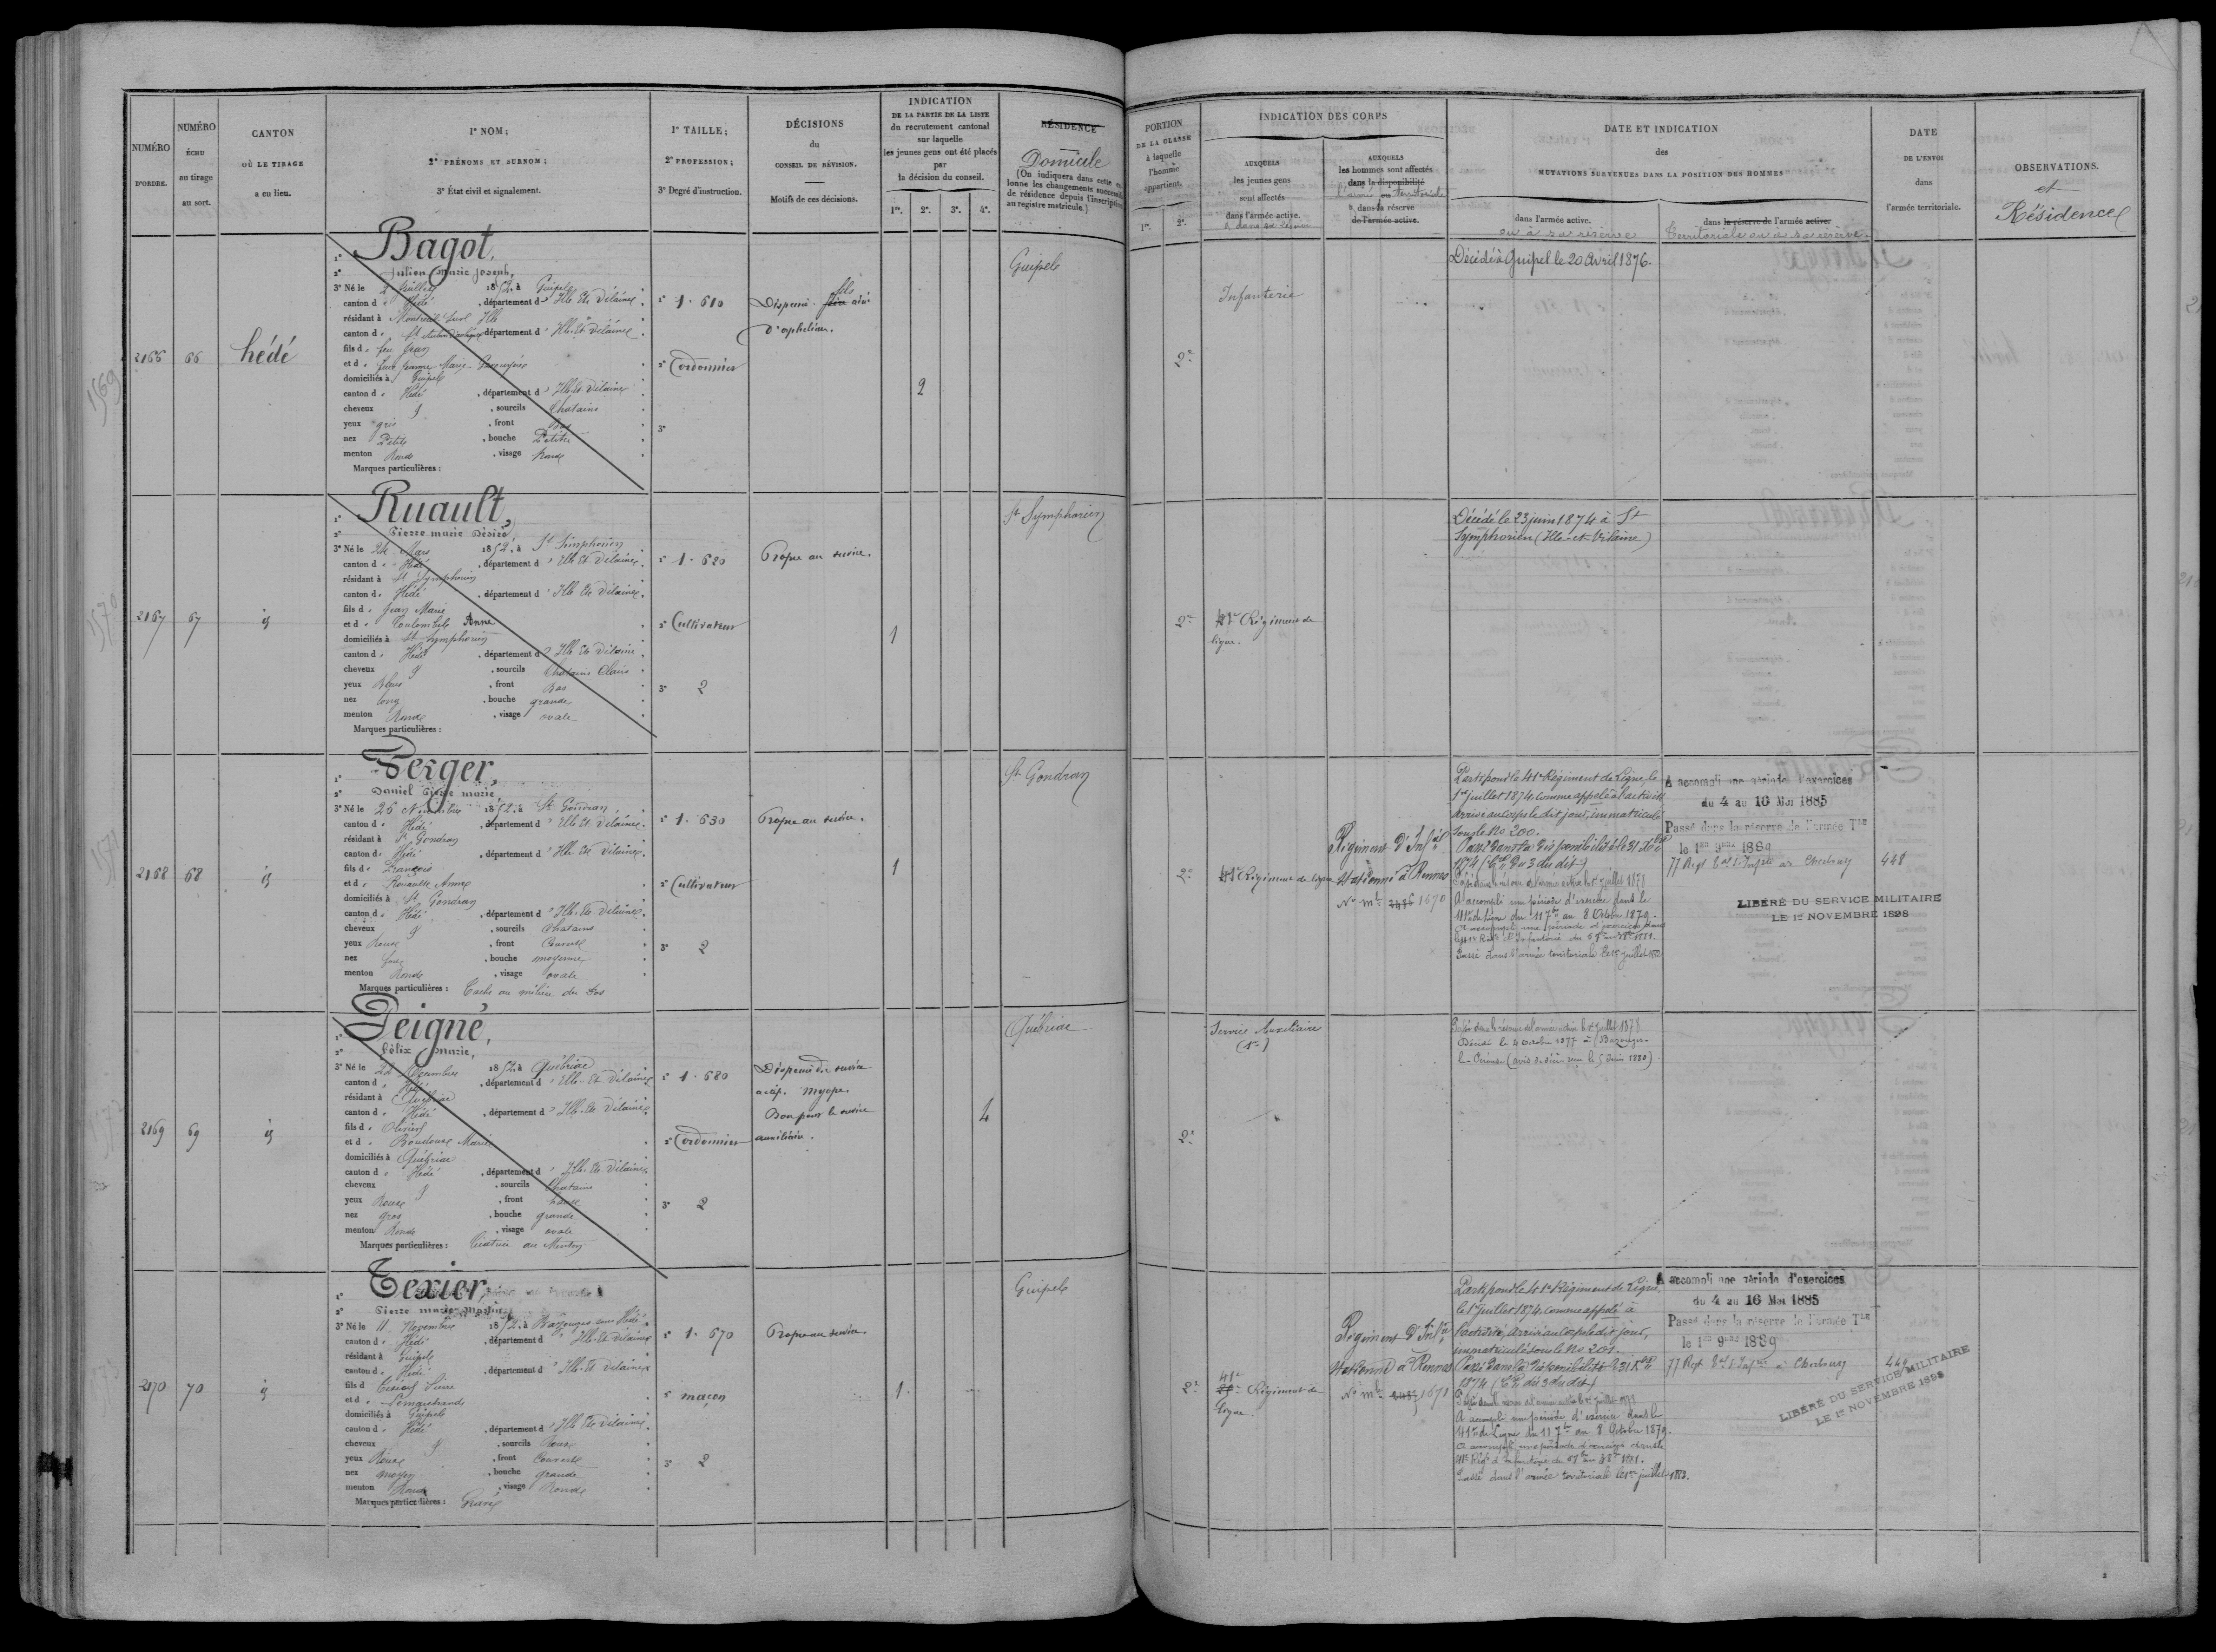 NUMÉRO
D'ORDRE.
NUMÉRO
ÉCHU
au tirage
au sort.
CANTON
OÙ LE TIRAGE
a eu lieu.
1° NOM;
2° PRÉNOMS ET SURNOM;
3° État civil et signalement.
1° TAILLE;
2° PROFESSION;
3° Degré d'instruction.
DÉCISIONS
du
CONSEIL DE RÉVISION.
Motifs de ces décisions.
INDICATION
DE LA PARTIE DE LA LISTE
du recrutement cantonal
sur laquelle
les jeunes gens ont été placés
par
la décision du conseil.
1re. 2e. 3e. 4e.
RÉSIDENCE
Domicile
(On indiquera dans cette co-
lonne les changements successifs
de résidence depuis l'inscription
au registre matricule.)
2166 66 hédé
1° Bagot,
2° Julien Marie Joseph,
3° Né le 2 Juillet 1852, à Guipel
canton d Hédé, département d'Ille Et Vilaine
résidant à Montreuil sur Ille
canton de St Aubin d'Aubigné département d'Ille Et Vilaine
fils d feu Jean
et d feue Jeanne Marie
domiciliés à Guipel
canton d Hédé, département d'Ille Et Vilaine
cheveux, sourcils Chatains
yeux gris, front Bas
nez Petit, bouche Petite
menton Rond, visage Rond
Marques particulières :
1° 1.610
2° Cordonnier
3°
Dispensé. fils aîné
d'orphelins.
2
Guipel
2167 67 id
1° Ruault,
2° Pierre marie Désiré,
3° Né le 24 Mars 1852, à St Simphorien
canton d Hédé, département d'Ille Et Vilaine
résidant à St Symphorien
canton d Hédé, département d'Ille Et Vilaine
fils d Jean Marie
et d Coulombel Anne
domiciliés à St Symphorien
canton d Hédé, département d'Ille Et Vilaine
cheveux, sourcils Chatains Clairs
yeux Bleus, front Bas
nez long, bouche grande
menton Rond, visage ovale
Marques particulières :
1° 1.620
2° Cultivateur
3° 2
Propre au service.
1
St Symphorien
2168 68 id
1° Berger,
2° Daniel Pierre marie,
3° Né le 26 Novembre 1852, à St Gondran
canton d Hédé, département d'Ille Et Vilaine
résidant à St Gondran
canton d Hédé, département d'Ille Et Vilaine
fils d François
et d Rouault Anne
domiciliés à St Gondran
canton d Hédé, département d'Ille Et Vilaine
cheveux, sourcils Chatains
yeux Roux, front Couvert
nez fort, bouche moyenne
menton Rond, visage ovale
Marques particulières : Tache au milieu du dos
1° 1.630
2° Cultivateur
3° 2
Propre au service.
1
St Gondran
2169 69 id
1° Deigné,
2° Félix Marie,
3° Né le 22 Décembre 1852, à Québriac
canton d Hédé, département d'Ille Et Vilaine
résidant à Québriac
canton d Hédé, département d'Ille Et Vilaine
fils d Olivier
et d Marie
domiciliés à Québriac
canton d Hédé, département d'Ille Et Vilaine
cheveux, sourcils Chatains
yeux Roux, front haut
nez gros, bouche grande
menton Rond, visage ovale
Marques particulières : Cicatrice au Menton
1° 1.680
2° Cordonnier
3° 2
Dispensé du service
actif. myope.
Bon pour le service
auxiliaire.
4
Québriac
2170 70 id
1° Texier,
2° Pierre marie
3° Né le 11 Novembre 1852, à Bazouges sous Hédé
canton d Hédé, département d'Ille Et Vilaine
résidant à Guipel
canton d Hédé, département d'Ille Et Vilaine
fils d Pierre
et d
domiciliés à Guipel
canton d Hédé, département d'Ille Et Vilaine
cheveux, sourcils Roux
yeux Roux, front Couvert
nez moyen, bouche grande
menton Rond, visage Rond
Marques particulières : Gravé
1° 1.670
2° maçon
3° 2
Propre au service.
1
Guipel
PORTION
DE LA CLASSE
à laquelle
l'homme
appartient.
1re. 2e.
INDICATION DES CORPS
AUXQUELS
les jeunes gens
sont affectés
dans l'armée active.
AUXQUELS
les hommes sont affectés
dans la disponibilité
l'armée territoriale
dans la réserve
de l'armée active.
DATE ET INDICATION
des
MUTATIONS SURVENUES DANS LA POSITION DES HOMMES
dans l'armée active.
ou à sa réserve
dans la réserve de l'armée active
Territoriale ou à sa réserve
DATE
DE L'ENVOI
dans
l'armée territoriale.
OBSERVATIONS.
et
Résidence
2e
Infanterie
Décédé à Guipel le 20 Avril 1876.
2e
41e Régiment de
ligne.
Décédé le 23 juin 1874 à St
Symphorien (Ille-et-Vilaine)
2e
41e Régiment de ligne
Régiment d'Infie
stationné à Rennes
No mle 1670
Parti pour le 41e Régiment de Ligne le
1er juillet 1874, comme appelé à l'activité
arrivé au corps le dit jour, immatriculé
sous le No 200.
Passé dans la disponibilité le 31 Xbre
1874
Passé dans la réserve de l'armée active le 1er juillet 1878
A accompli une période d'exercice dans le
41e de Ligne du 11 7bre au 8 Octobre 1879.
Passé dans l'armée territoriale le 1er juillet
A accompli une période d'exercices
du 4 au 16 Mai 1885
Passé dans la réserve de l'armée Tle
le 1er 9bre 1889
77 Regt d'Infie à Cherbourg
448
LIBÉRÉ DU SERVICE MILITAIRE
LE 1er NOVEMBRE 1898
2e
Service Auxiliaire
Passé dans la réserve de l'armée active le 1er juillet 1878.
Décédé le 4 octobre 1877 à Bazouges-
la-Pérouse (avis de décès reçu le 5 Juin 1880)
2e
41e
Régiment de
ligne.
Régiment d'Infie
stationné à Rennes
No mle 1671
Parti pour le 41e Régiment de Ligne
le 1er juillet 1874, comme appelé à
l'activité, arrivé au corps le dit jour,
immatriculé sous le No 201.
Passé dans la disponibilité le 31 Xbre
1874
A accompli une période d'exercice dans le
41e de Ligne du 11 7bre au 8 Octobre 1879.
Passé dans l'armée territoriale le 1er juillet 1883.
A accompli une période d'exercices
du 4 au 16 Mai 1885
Passé dans la réserve de l'armée Tle
le 1er 9bre 1889
77 Regt d'Infie à Cherbourg
448
LIBÉRÉ DU SERVICE MILITAIRE
LE 1er NOVEMBRE 1898